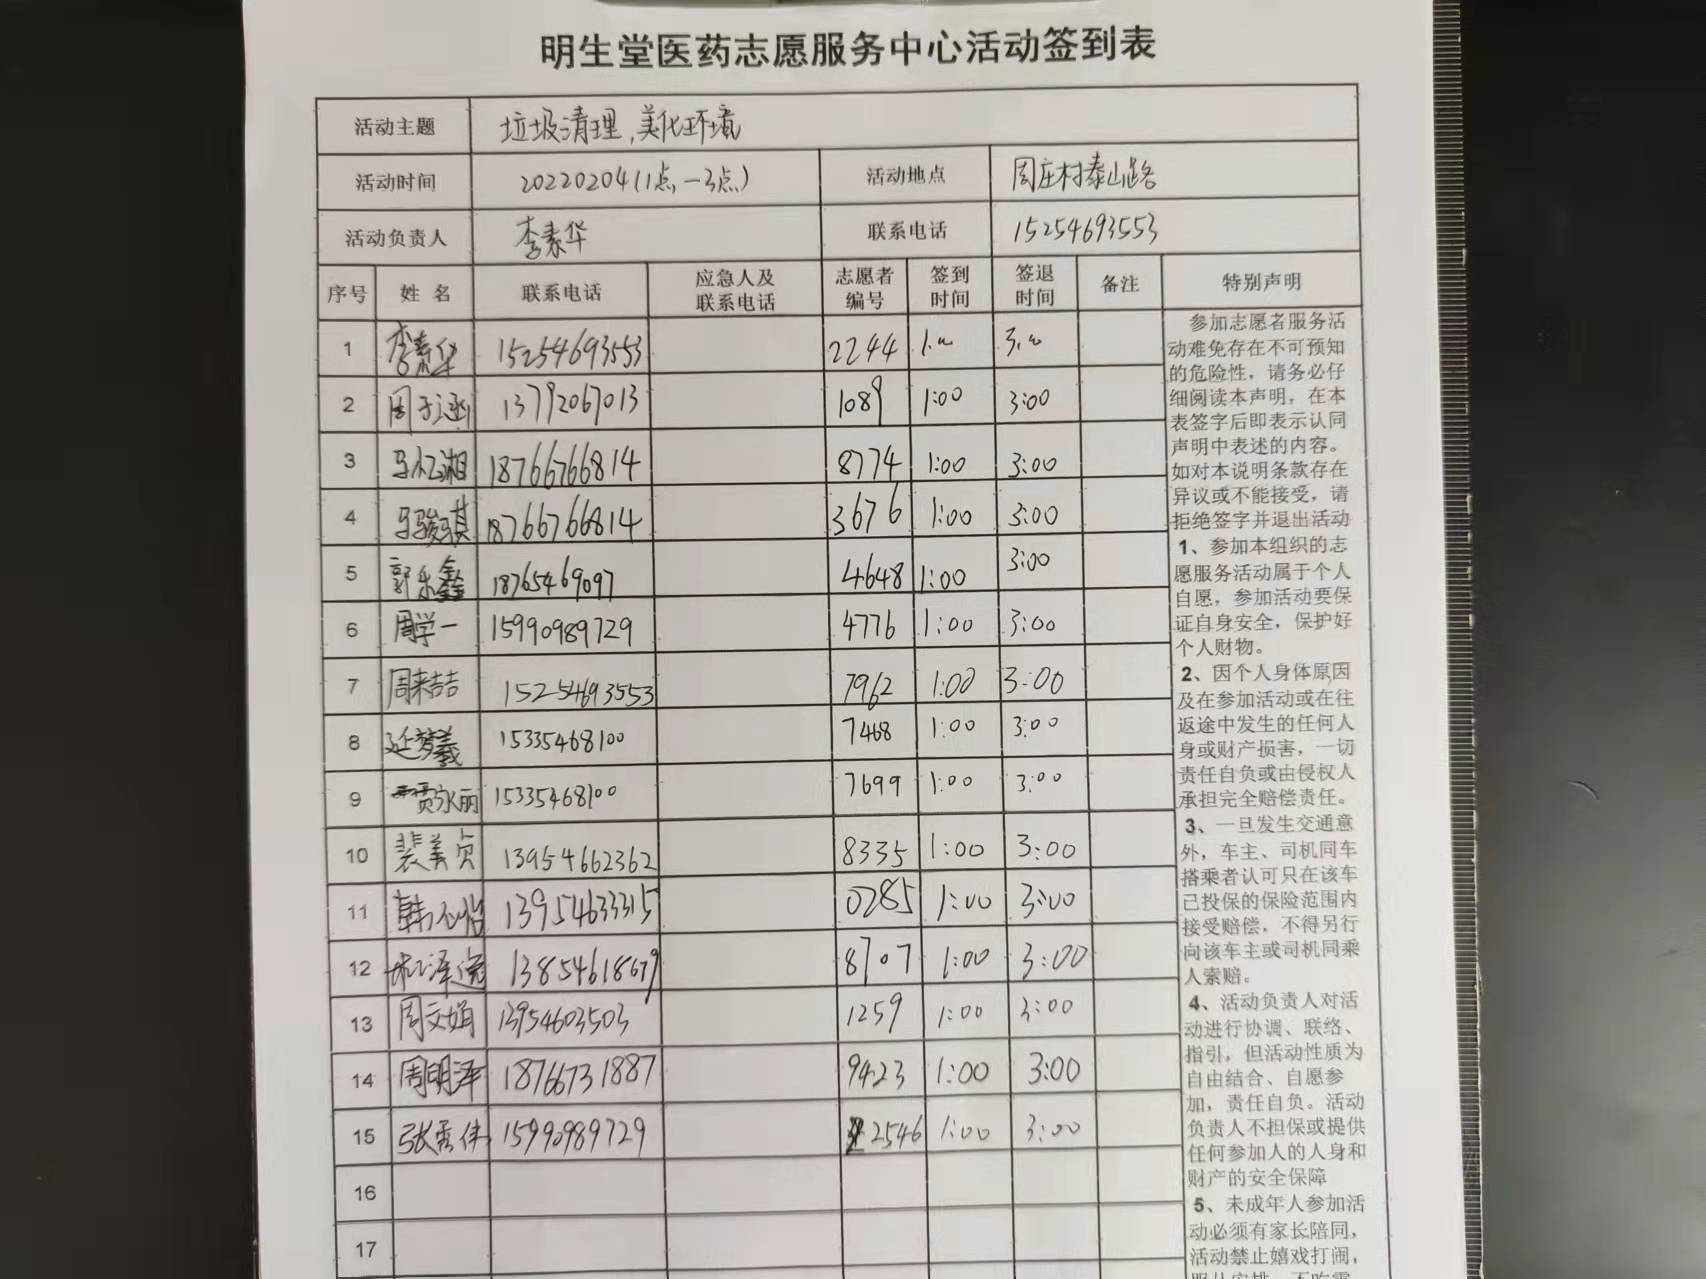 明生堂医药志愿服务中心活动签到表
活动主题 垃圾清理,美化环境
活动时间 20220204(1点-3点) 活动地点 周庄村泰山路
活动负责人 李素华 联系电话 15254693553
序号 姓名 联系电话 应急人及联系电话 志愿者编号 签到时间 签退时间 备注 特别声明
1 李素华 15254693553 2244 1:00 3:00
2 周子涵 13792067013 1089 1:00 3:00
3 马忆湘 18766766814 8774 1:00 3:00
4 马骏骐 18766766814 3676 1:00 3:00
5 郭乐鑫 18765469097 4648 1:00 3:00
6 周学一 15990989729 4776 1:00 3:00
7 周来喆 15254693553 7962 1:00 3:00
8 延梦羲 15335468100 7468 1:00 3:00
9 贾永丽 15335468100 7699 1:00 3:00
10 裴美贞 13954662362 8335 1:00 3:00
11 韩心怡 13954633315 0285 1:00 3:00
12 13854618679 8707 1:00 3:00
13 周文娟 13954603503 1259 1:00 3:00
14 周明泽 18766731887 9423 1:00 3:00
15 张秀伟 15990989729 2546 1:00 3:00
16
17
参加志愿者服务活
动难免存在不可预知
的危险性，请务必仔
细阅读本声明，在本
表签字后即表示认同
声明中表述的内容。
如对本说明条款存在
异议或不能接受，请
拒绝签字并退出活动
1、参加本组织的志
愿服务活动属于个人
自愿，参加活动要保
证自身安全，保护好
个人财物。
2、因个人身体原因
及在参加活动或在往
返途中发生的任何人
身或财产损害，一切
责任自负或由侵权人
承担完全赔偿责任。
3、一旦发生交通意
外，车主、司机同车
搭乘者认可只在该车
已投保的保险范围内
接受赔偿，不得另行
向该车主或司机同乘
人索赔。
4、活动负责人对活
动进行协调、联络、
指引，但活动性质为
自由结合、自愿参
加，责任自负。活动
负责人不担保或提供
任何参加人的人身和
财产的安全保障
5、未成年人参加活
动必须有家长陪同，
活动禁止嬉戏打闹，